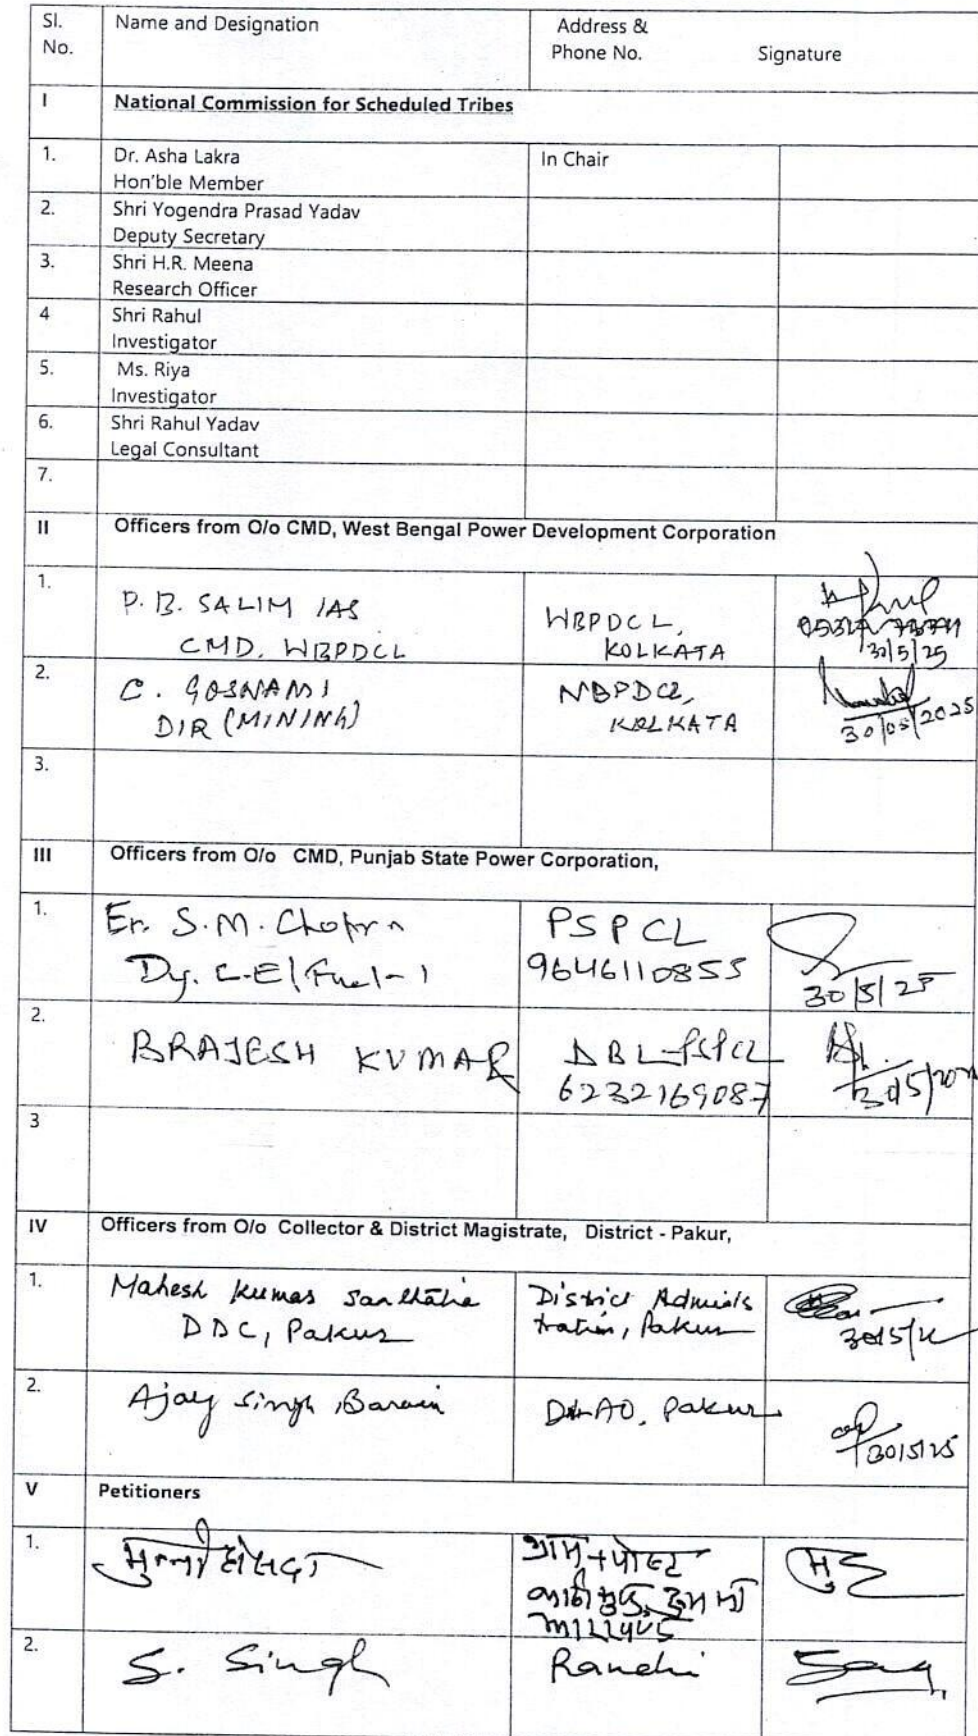 Sl. No. Name and Designation Address & Phone No. Signature
I National Commission for Scheduled Tribes
1. Dr. Asha Lakra In Chair
Hon'ble Member
2. Shri Yogendra Prasad Yadav
Deputy Secretary
3. Shri H.R. Meena
Research Officer
4 Shri Rahul
Investigator
5. Ms. Riya
Investigator
6. Shri Rahul Yadav
Legal Consultant
7.
II Officers from O/o CMD, West Bengal Power Development Corporation
1. P. B. SALIM IAS WBPDCL,
CMD, WBPDCL KOLKATA
30/5/25
2. C. GOSWAMI WBPDCL,
DIR (MINING) KOLKATA
30/05/2025
3.
III Officers from O/o CMD, Punjab State Power Corporation,
1. Er. S.M. Chopra PSPCL
Dy. C.E/Fuel-1 9646110855
30/5/25
2. BRAJESH KUMAR DBL-PSPCL
6232169087
3
IV Officers from O/o Collector & District Magistrate, District - Pakur,
1. Mahesh Kumar District Adminis
DDC, Pakur tration, Pakur
2. Ajay Singh Baraik DLAO, Pakur
30/5/25
V Petitioners
1. ग्राम+पोस्ट
2. S. Singh Ranchi